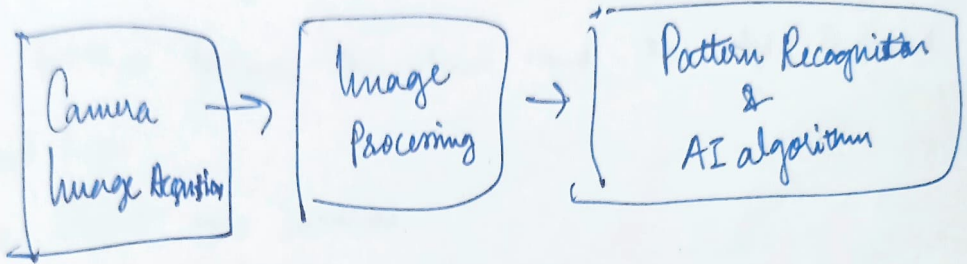 Camera
Image Acqustion
Image
Processing
Pattern Recognition
&
AI algorithm